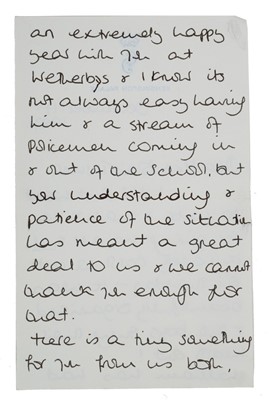 an extremely happy
year with you at
Wetherbys & I know its
not always easy having
him & a stream of
Policemen coming in
& out of the School. But
your understanding &
patience of the situation
has meant a great
deal to us & we cannot
thank you enough for
that.
There is a tiny something
for you from us both,